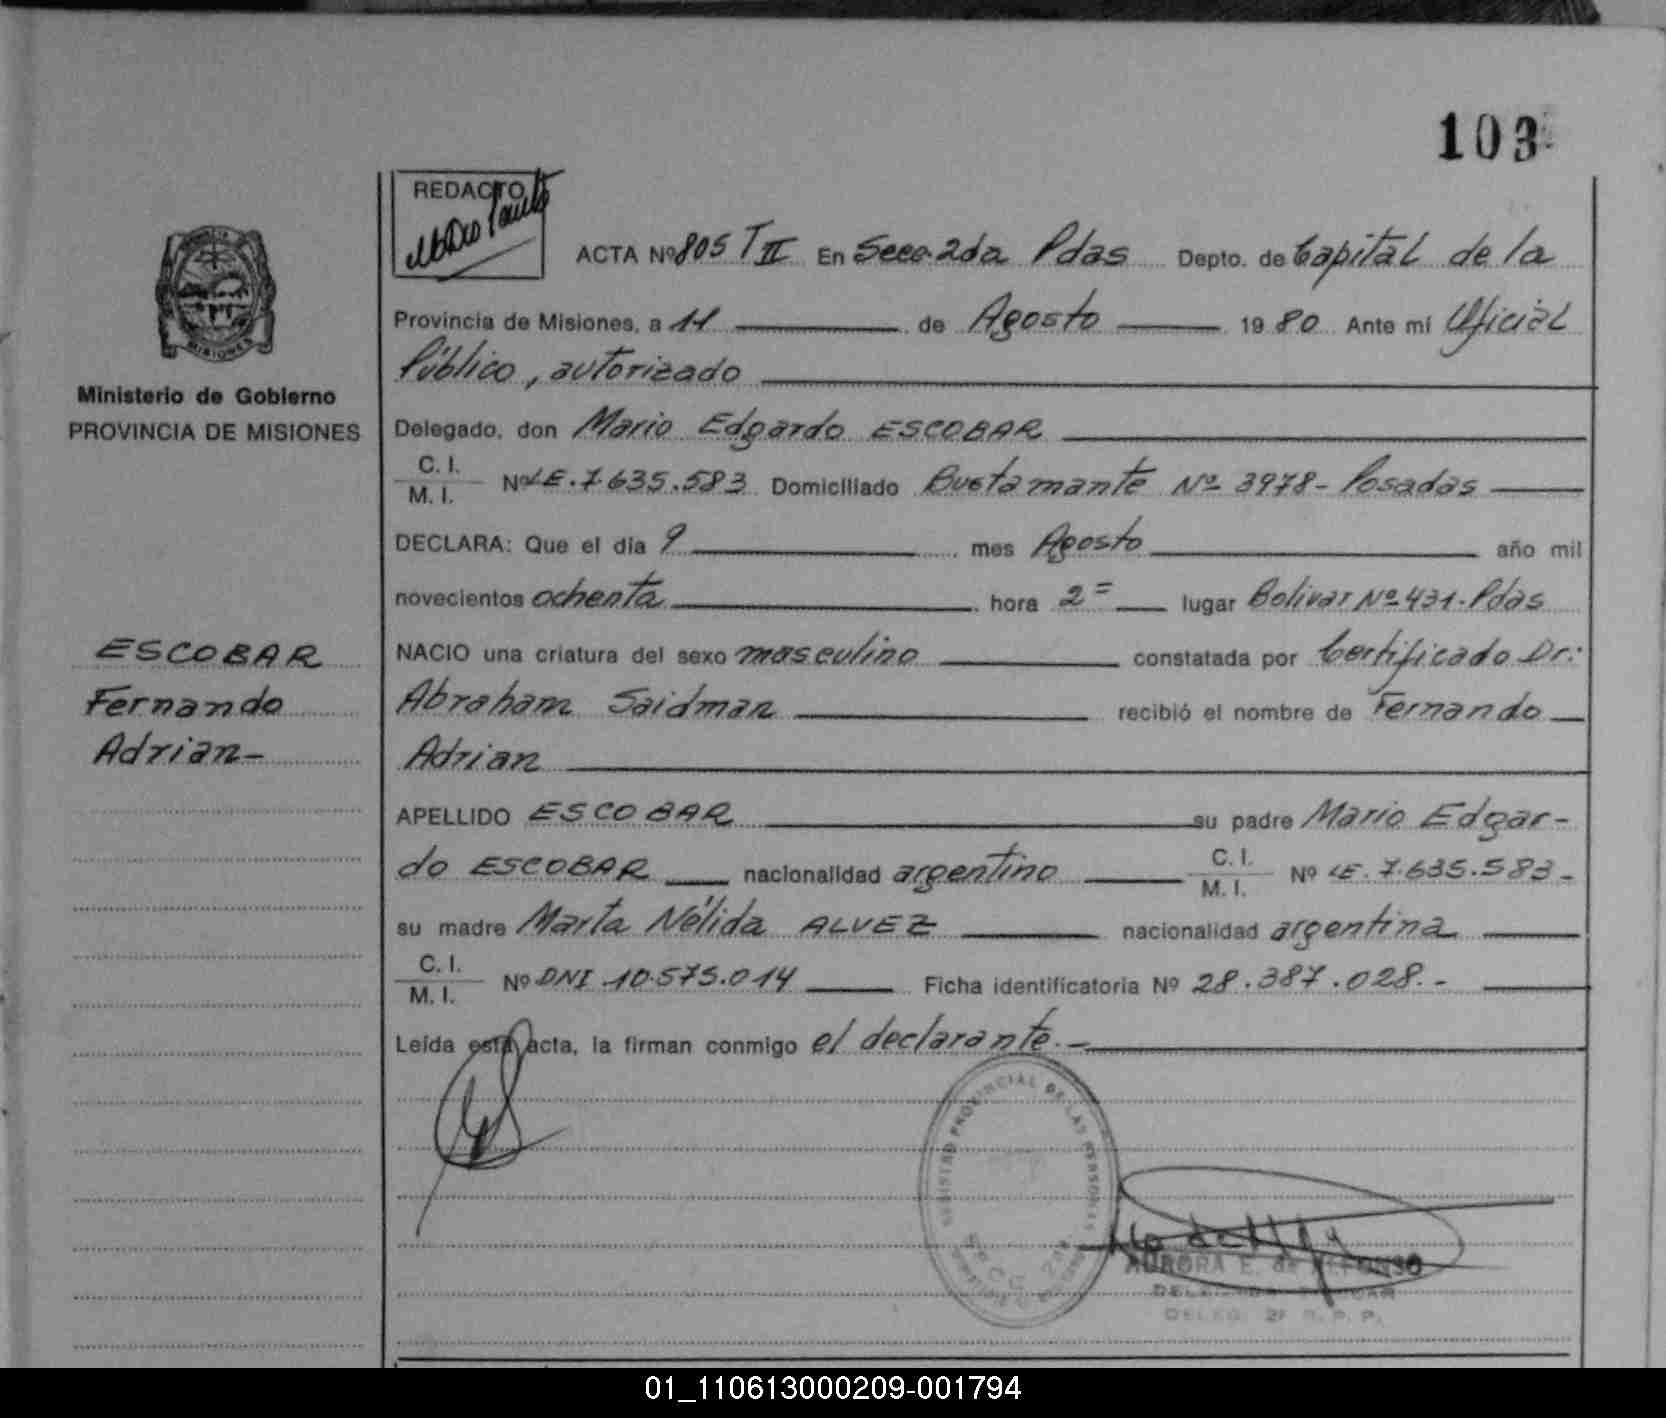 103
REDACTO
ACTA Nº 805 T II En Secc. 2da Pdas Depto. de Capital de la
Provincia de Misiones, a 11 de Agosto 19 80 Ante mi Oficial
Público, autorizado
MISIONES
Ministerio de Gobierno
PROVINCIA DE MISIONES
Delegado, don Mario Edgardo ESCOBAR
C. I.
M. I. Nº LE. 7.635.583 Domiciliado Bustamante Nº 3978 - Posadas
DECLARA: Que el día 9 mes Agosto año mil
novecientos ochenta hora 2= lugar Bolivar Nº 431. Pdas
ESCOBAR
Fernando
Adrian-
NACIO una criatura del sexo masculino constatada por Certificado Dr:
Abraham Saidman recibió el nombre de Fernando
Adrian
APELLIDO ESCOBAR su padre Mario Edgar-
do ESCOBAR nacionalidad argentino C. I. M. I. Nº LE. 7.635.583-
su madre Marta Nélida ALVEZ nacionalidad argentina
C. I.
M. I. Nº DNI 10.575.014 Ficha identificatoria Nº 28.387.028.-
Leída esta acta, la firman conmigo el declarante.-
REGISTRO PROVINCIAL DE LAS PERSONAS
AURORA E. de ALFONSO
DELEG. 2ª R. P. P.
01_110613000209-001794